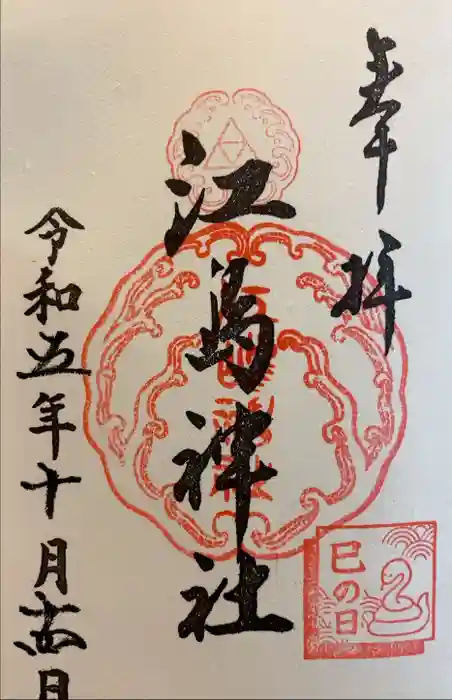 奉拝
江島神社
令和五年十月廿四日
巳の日